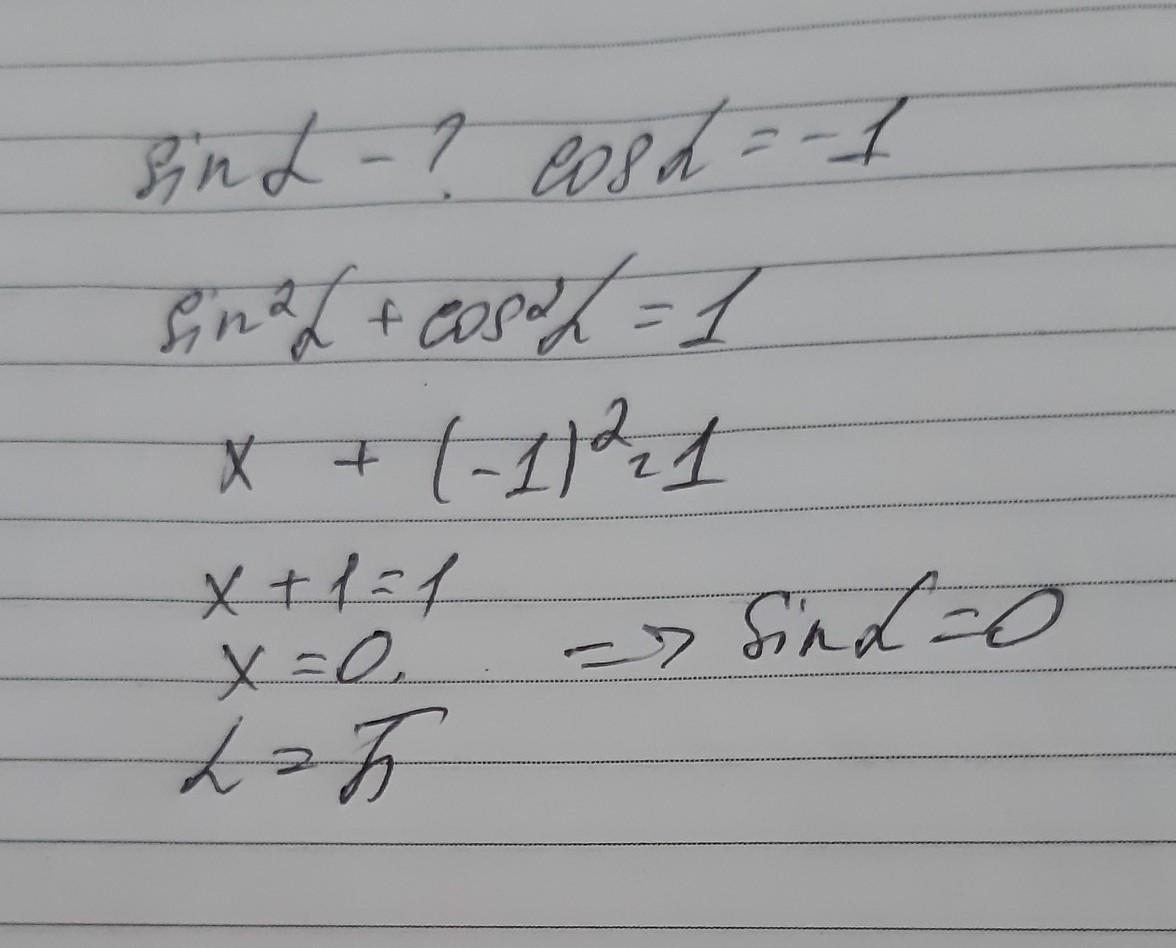 sin α - ? cos α = -1
sin²α + cos²α = 1
x + (-1)² = 1
x + 1 = 1
x = 0. => sin α = 0
α = π